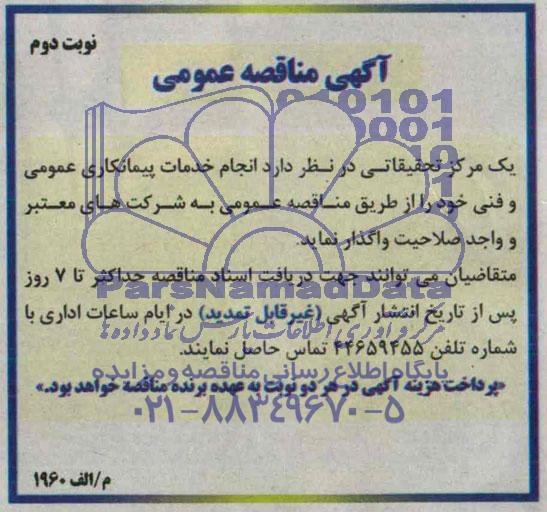 نوبت دوم
آگهی مناقصه عمومی
یک مرکز تحقیقاتی در نظر دارد انجام خدمات پیمانکاری عمومی
و فنی خود را از طریق مناقصه عمومی به شرکت های معتبر
و واجد صلاحیت واگذار نماید.
متقاضیان می توانند جهت دریافت اسناد مناقصه حداکثر تا ۷ روز
پس از تاریخ انتشار آگهی (غیرقابل تمدید) در ایام ساعات اداری با
شماره تلفن ۴۴۶۵۹۴۵۵ تماس حاصل نمایند.
«پرداخت هزینه آگهی در هر دو نوبت به عهده برنده مناقصه خواهد بود.»
م/الف ۱۹۶۰
ParsNamadData
مرکز فرآوری اطلاعات پارس نماد داده ها
پایگاه اطلاع رسانی مناقصه و مزایده
۰۲۱-۸۸۳۴۹۶۷۰-۵